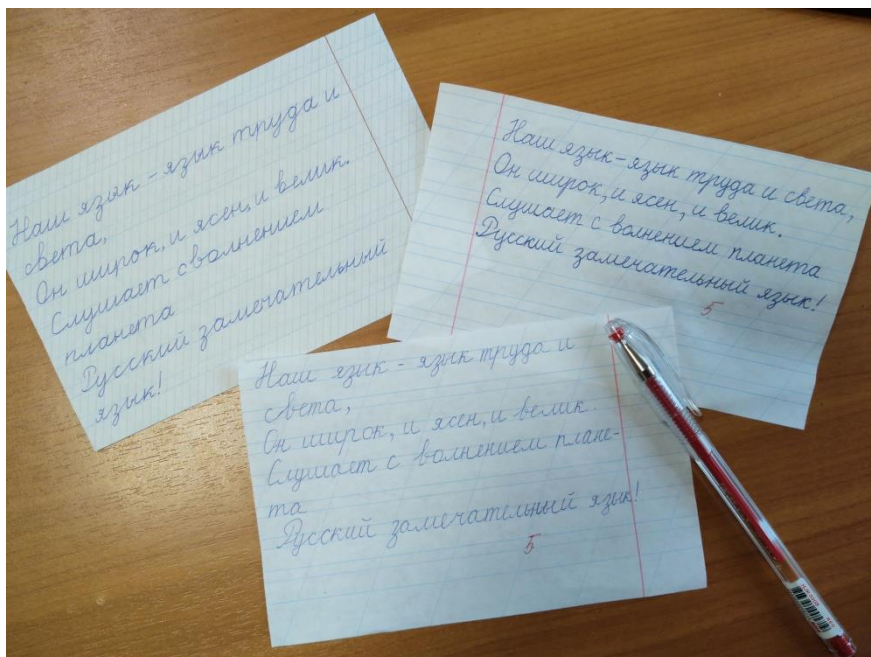 Наш язык - язык труда и
света,
Он широк, и ясен, и велик.
Слушает с волнением
планета
Русский замечательный
язык!
Наш язык - язык труда и света,
Он широк, и ясен, и велик.
Слушает с волнением планета
Русский замечательный язык!
5
Наш язык - язык труда и
света,
Он широк, и ясен, и велик.
Слушает с волнением плане-
та
Русский замечательный язык!
5